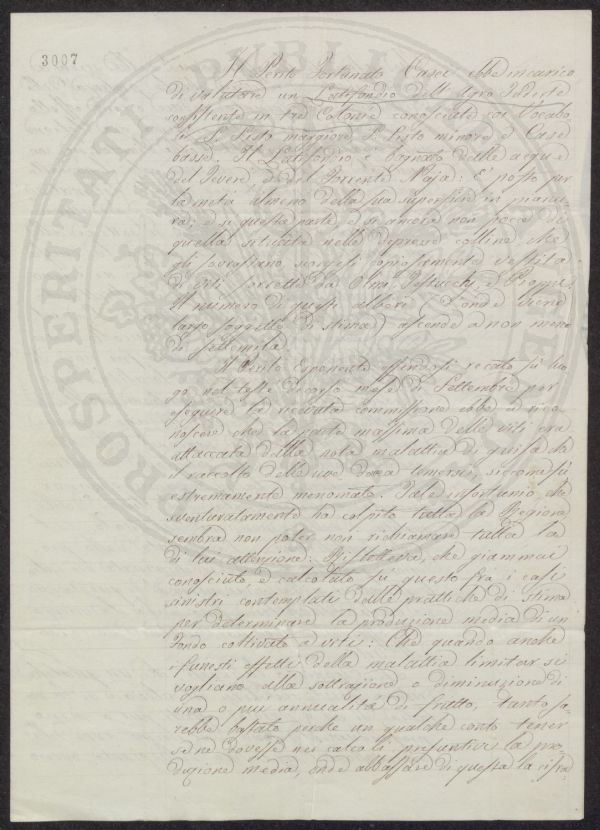 3007
Il Perito Fortunato Casei ebbe incarico
di valutare un Latifondio dell'Agro
consistente in tre Colonie conosciute coi Vocabo
li S. Sisto maggiore S. Sisto minore e Case
basse. Il Latifondio è bagnato dalle acque
del Tevere, e del Torrente Naja: È posto per
la metà almeno della sua superficie in pianu
ra; e sì questa parte e sì ancora non poca di
quella situata nelle depresse colline che
gli sovrastano scorgesi copiosamente vestita
di viti sorrette da Olmi, e Pioppi.
Il numero di questi alberi
largo soggetto di stima ascende a non meno
di settemila.
Il Perito Esponente essendosi recato sù luo
go nel testè decorso mese di Settembre per
eseguire la ricevuta commissione ebbe a rico
noscere che la parte massima delle viti era
attaccata dalla nota malattia di guisa che
il raccolto delle uve siccome fù
estremamente menomato. Tale infortunio che
sventuratamente ha colpito tutta la Regione
sembra non poter non richiamare tutta la
di lui attenzione: Rifletteva, che giammai
conosciuto, e calcolato fù questo fra i casi
sinistri contemplati dalle pratiche di stima
per determinare la produzione media di un
fondo coltivato a viti: Che quando anche
i funesti effetti della malattia limitar si
vogliano alla sottrazione o diminuzione di
una o più annualità di frutto, tanto sa-
rebbe bastato perchè un qualche conto tener
se ne dovesse nei calcoli presuntivi la pro-
duzione media, onde abbassare di questa la cifra
PROSPERITATI PUBLICAE